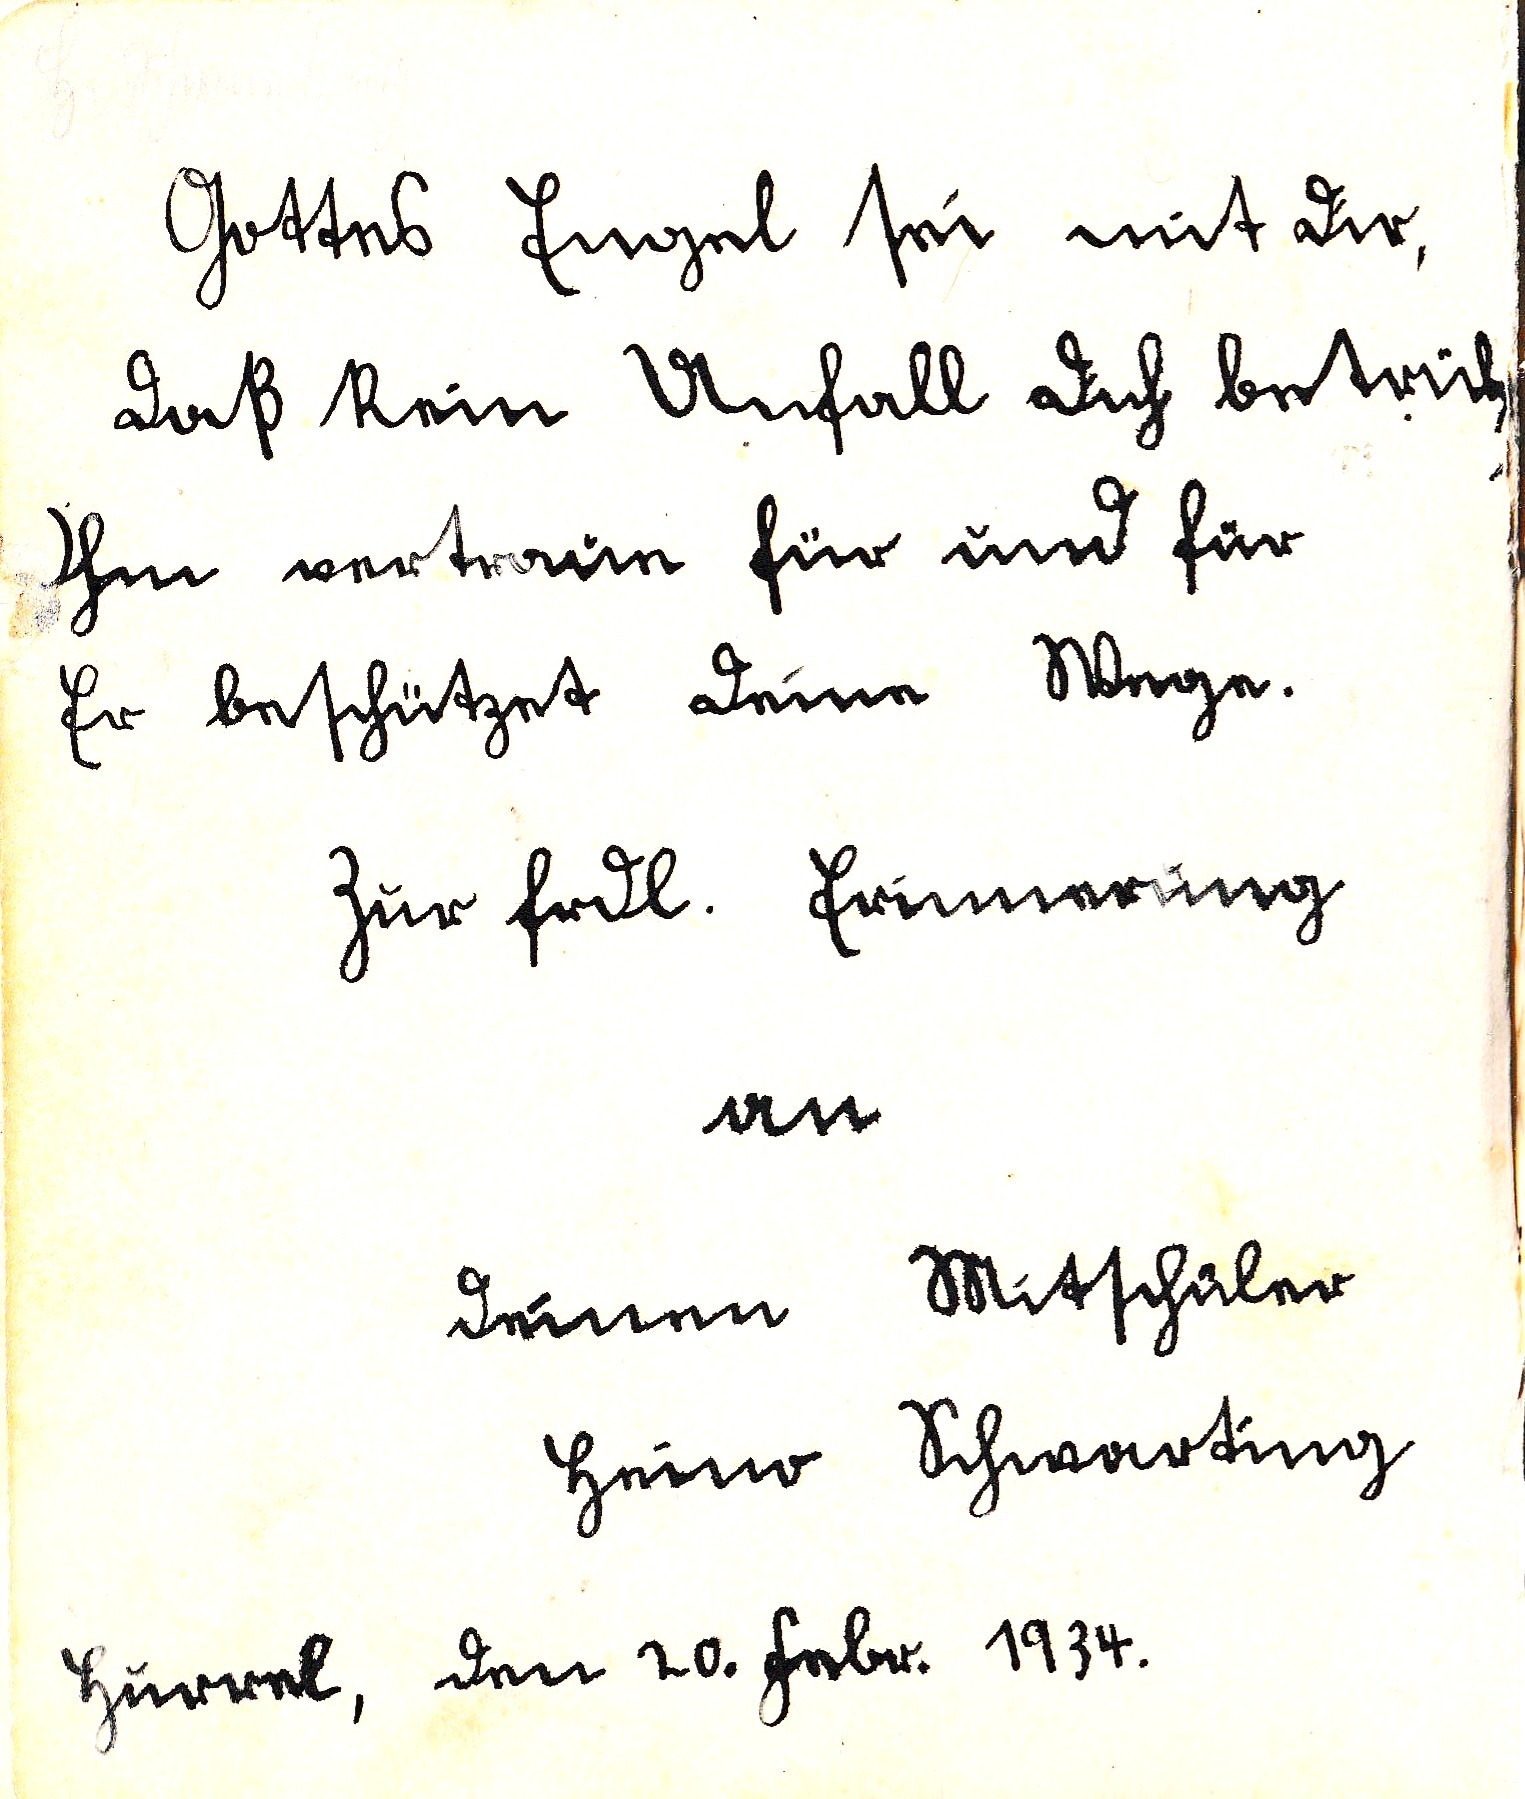 Gottes Engel sei mit dir,
daß kein Unfall dich betrüb,
Ihm vertraue für und für
Er beschützet deine Wege.
Zur frdl. Erinnerung
an
deinen Mitschüler
Heino Schwarting
Hurrel, den 20. Febr. 1934.